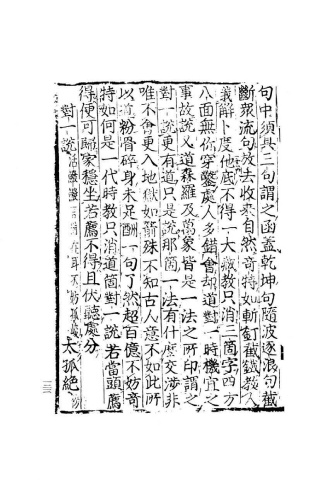 句中須具三句謂之函蓋乾坤句隨波逐浪句截
斷衆流句放去收來自然奇特如斬釘截鐵教人
義解卜度他底不得一大藏教只消三箇字四方
八面無你穿鑿處人多錯會却道對一時機宜之
事故說又道森羅及萬象皆是一法之所印謂之
對一說更有道只是說那箇一法有什麼交涉非
唯不會更入地獄如箭殊不知古人意不如此所
以道粉骨碎身未足酬一句了然超百億不妨奇
特如何是一代時教只消道箇對一說若當頭薦
得便可歸家穩坐若薦不得且伏聽處分
對一說 活鱍鱍言猶在耳不妨孤峻 太孤絕